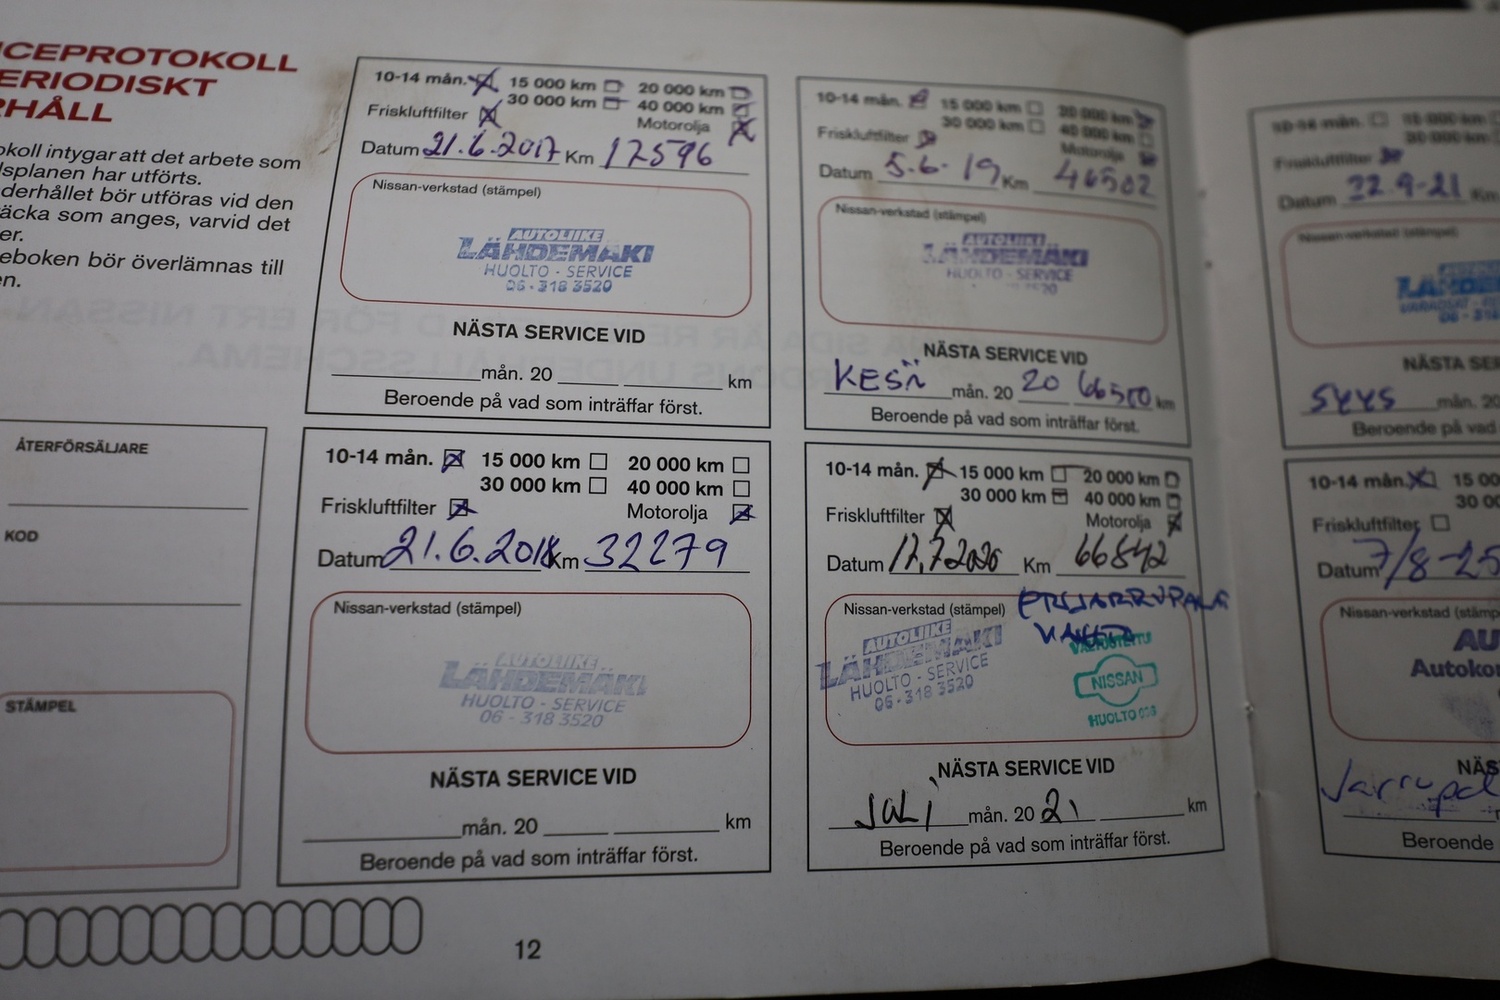 CEPROTOKOLL
ERIODISKT
HÅLL
okoll intygar att det arbete som
lsplanen har utförts.
derhållet bör utföras vid den
äcka som anges, varvid det
er.
eboken bör överlämnas till
en.
ÅTERFÖRSÄLJARE
KOD
STÄMPEL
10-14 mån. 15 000 km 20 000 km
30 000 km 40 000 km
Friskluftfilter Motorolja
Datum 21.6.2017 Km 17596
Nissan-verkstad (stämpel)
AUTOLIIKE
LÄHDEMÄKI
HUOLTO - SERVICE
06 - 318 3520
NÄSTA SERVICE VID
mån. 20 km
Beroende på vad som inträffar först.
10-14 mån. 15 000 km 20 000 km
30 000 km 40 000 km
Friskluftfilter Motorolja
Datum 21.6.2018 Km 32279
Nissan-verkstad (stämpel)
AUTOLIIKE
LÄHDEMÄKI
HUOLTO - SERVICE
06 - 318 3520
NÄSTA SERVICE VID
mån. 20 km
Beroende på vad som inträffar först.
12
10-14 mån. 15 000 km 20 000 km
30 000 km 40 000 km
Friskluftfilter Motorolja
Datum 5.6.19 Km 46502
Nissan-verkstad (stämpel)
AUTOLIIKE
LÄHDEMÄKI
HUOLTO - SERVICE
NÄSTA SERVICE VID
KESÄ mån. 20 20 66500 km
Beroende på vad som inträffar först.
10-14 mån. 15 000 km 20 000 km
30 000 km 40 000 km
Friskluftfilter Motorolja
Datum 17.7.2020 Km 66842
Nissan-verkstad (stämpel)
AUTOLIIKE
LÄHDEMÄKI
HUOLTO - SERVICE
06 - 318 3520
VALTUUTETTU
NISSAN
HUOLTO
NÄSTA SERVICE VID
mån. 20 21 km
Beroende på vad som inträffar först.
10-14 mån.
Friskluftfilter
Datum 22.9-21 Km
Nissan-verkstad (stämpel)
AUTOLI
LÄHDE
NÄSTA SE
SYYS mån. 20
Beroende på vad som
10-14 mån. 15 00
30 00
Friskluftfilter
Datum 7/8-25
Nissan-verkstad (stämp
AU
Autokor
NÄS
Beroende